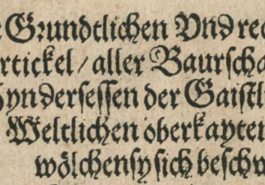 Grundtlichen Vnd rec
rtickel / aller Baurscha
hyndersessen der Gaistl
Weltlichen oberkayten
wölchen sy sich beschw